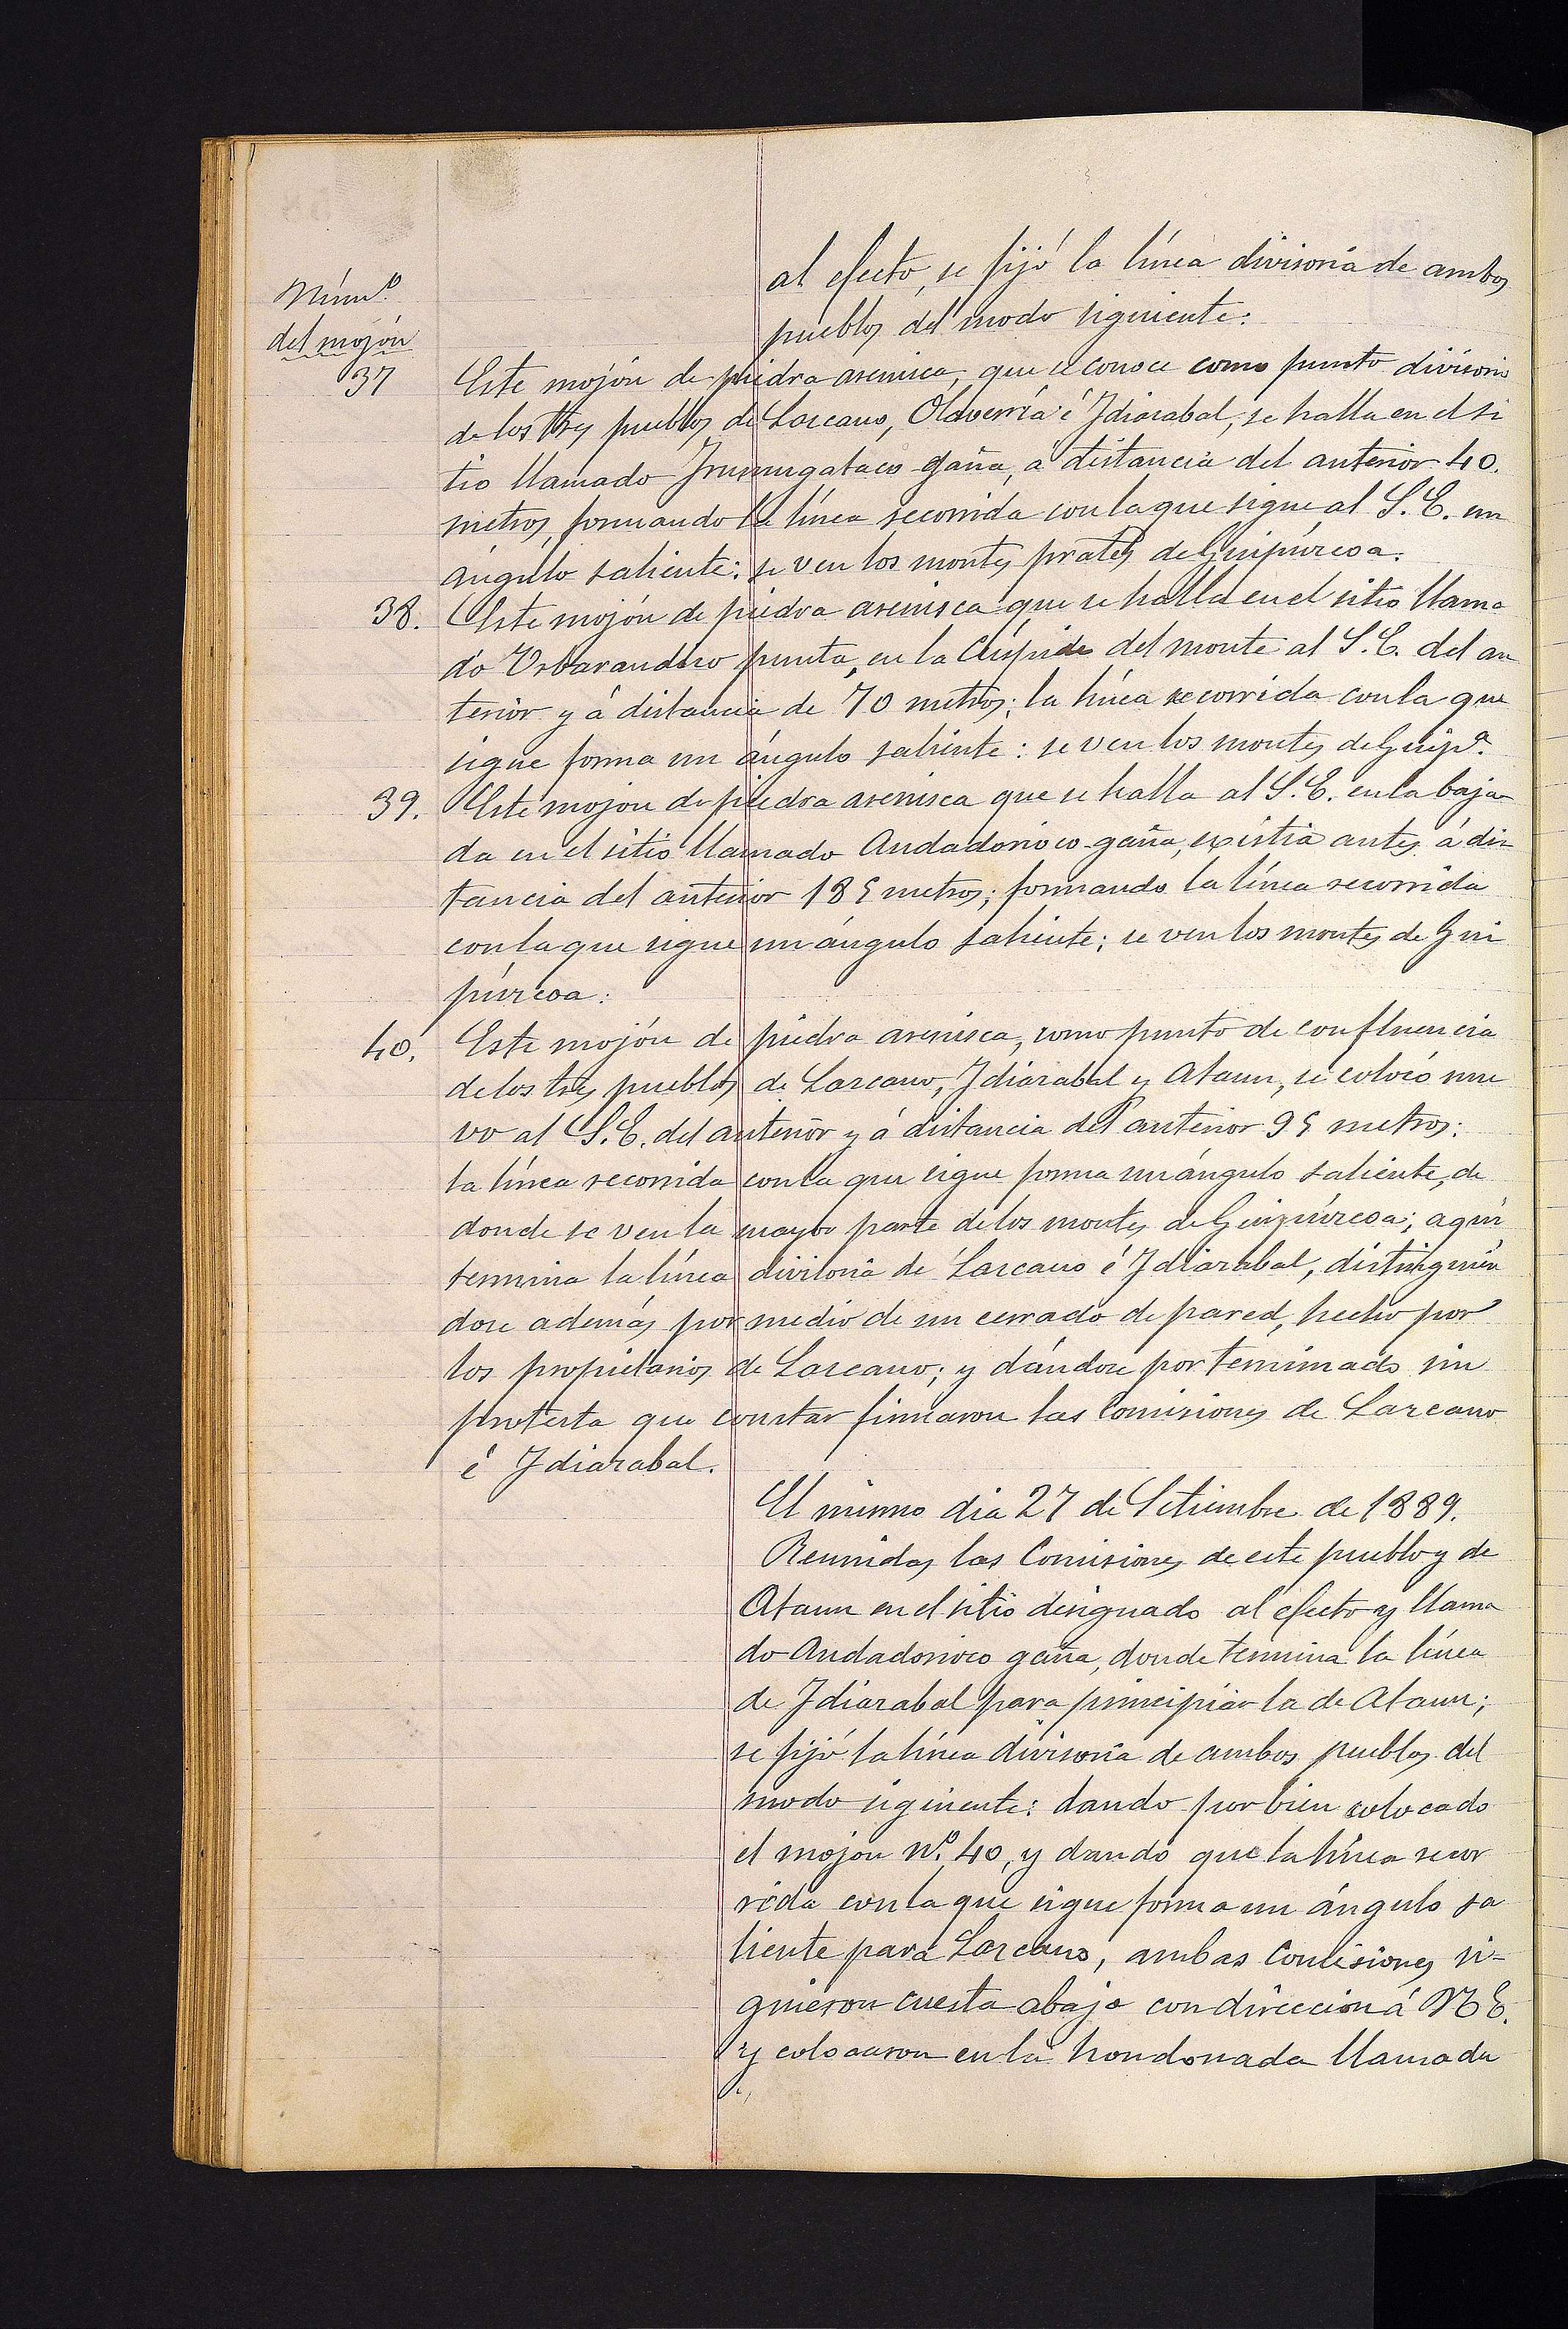 al efecto, se fijó la línea divisoria de ambos
pueblos del modo siguiente:
Núm.º
del mojón
37 Este mojón de piedra arenisca, que se conoce como punto divisorio
de los tres pueblos de Lazcano, Olaverría é Idiazabal, se halla en el si
tio llamado gaña, á distancia del anterior 40.
metros, formando la línea recorrida con la que sigue al S.E. un
ángulo saliente: se ven los montes prales de Guipúzcoa.
38. Este mojón de piedra arenisca que se halla en el sitio llama
do punta, en la Cúspide del monte al S.E. del an
terior y á distancia de 70 metros; la línea recorrida con la que
sigue forma un ángulo saliente: se ven los montes de Guipª.
39. Este mojon de piedra arenisca que se halla al S.E. en la baja
da en el sitio llamado Andadorioco-gaña, existia antes á dis
tancia del anterior 185 metros; formando la línea recorrida
con la que sigue un ángulo saliente; se ven los montes de Gui
púzcoa:
40. Este mojón de piedra arenisca, como punto de confluencia
de los tres pueblos de Lazcano, Idiazabal y Ataun, se colocó nue
vo al S.E. del anterior y á distancia del anterior 95 metros:
la línea recorrida con la que sigue forma un ángulo saliente, de
donde se ven la mayor parte de los montes de Guizpúzcoa; aquí
termina la línea divisoria de Lazcano é Idiazabal, distinguién
dose además por medio de un cerrado de pared, hecho por
los propietarios de Lazcano; y dándose por terminado sin
protesta que constar firmaron las Comisiones de Lazcano
é Idiazabal.
El mismo dia 27 de Setiembre de 1889.
Reunidas las Comisiones de este pueblo y de
Ataun en el sitio designado al efecto y llama
do Andadorioco gaña, donde termina la línea
de Idiazabal para principiar la de Ataun;
se fijó la línea divisoria de ambos pueblos del
modo siguiente: dando por bien colocado
el mojon nº. 40, y dando que la línea recor
rida con la que sigue forma un ángulo sa
liente para Lazcano, ambas Comisiones si-
guieron cuesta abajo con direccion á N E.
y colocaron en la hondonada llamada